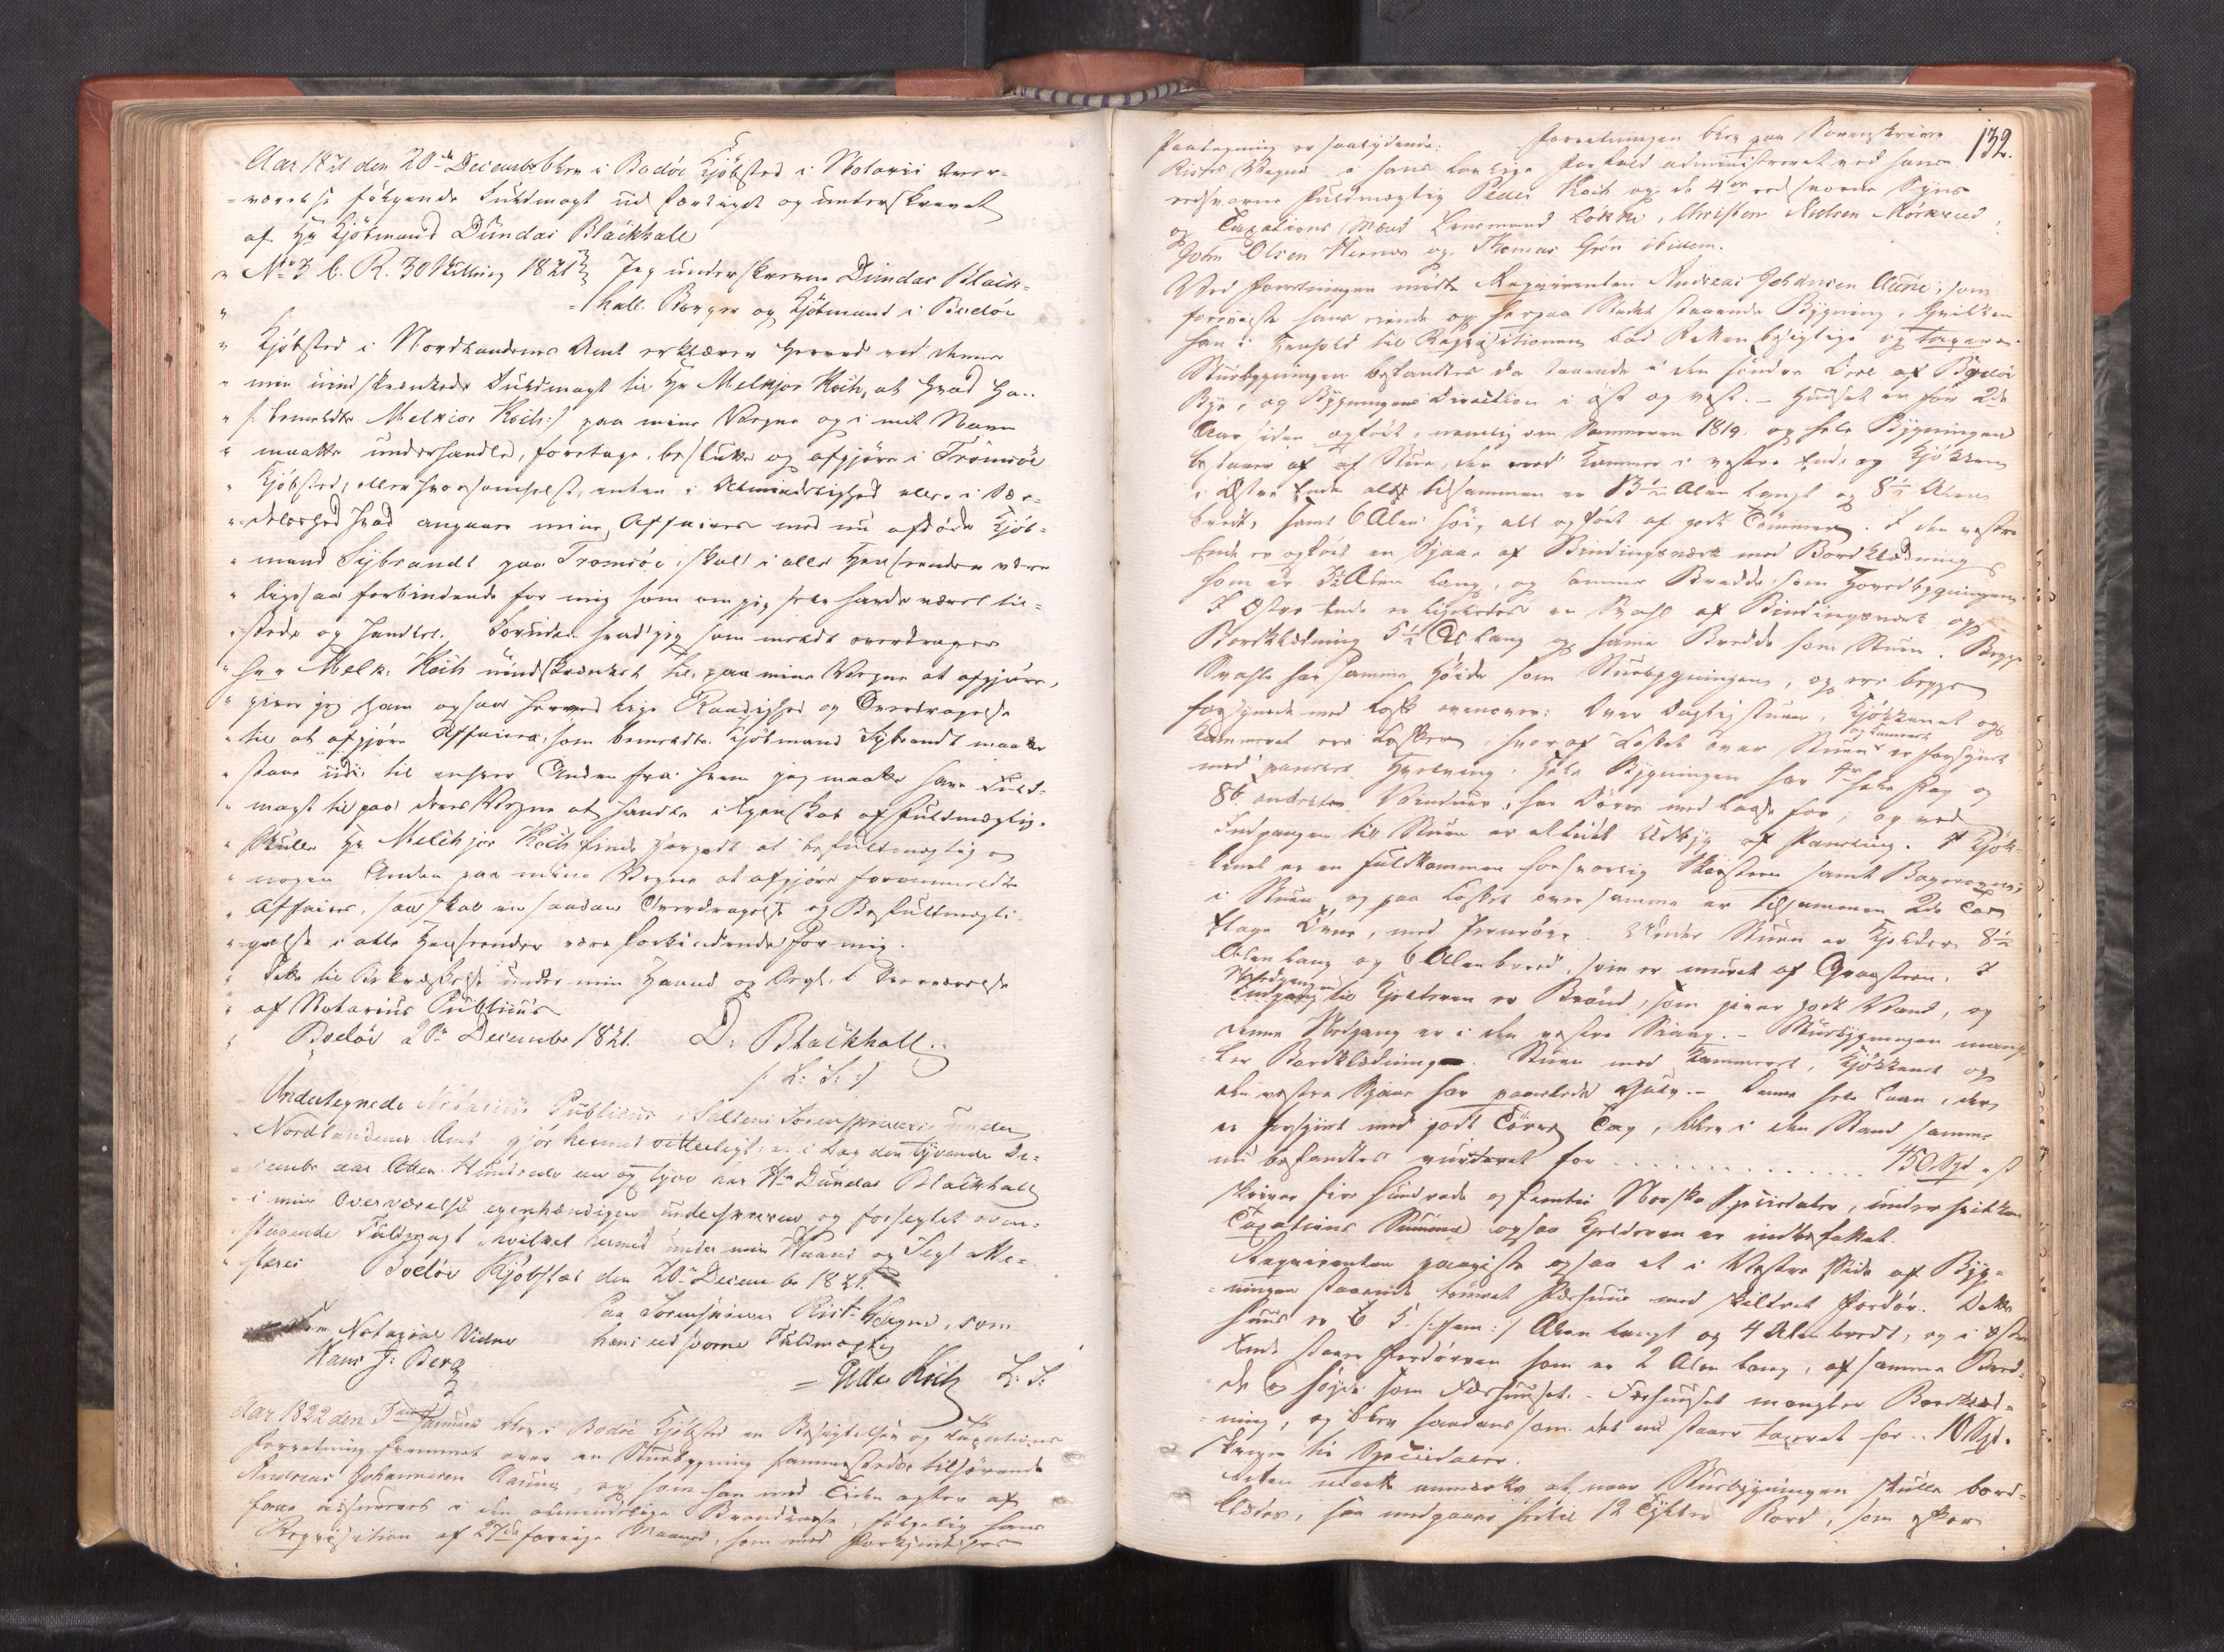 Aar 1821 den 20de December blev i Bodöe Kjöbsted i Notarii Over-
værelse fölgende Fuldmagt udfærdiget og underskrevet
af Hr Kjöbmand Dundas Blackhall
" No 3 C. R. 30 Skilling 1821 Jeg underskrevne Dundas Black-
" hall Borger og Kjöbmand i Bodöe
" Kjöbsted i Nordlandenes Amt erklærer herved ved denne
" min uindskrænkede Fuldmagt til Hr Melkjor Koch, at hvad Han
" /: bemeldte Melkior Koch :/ paa mine Vegne og i mit Navn
" maatte underhandle, foretage, beslutte og afgjöre i Tromsöe
" Kjöbsted, eller hvorsomhelst, enten i Almindelighed eller i Sær-
" deleshed hvad angaaer mine Affairer med nu afdöde Kjöb-
" mand Sybrandt paa Tromsöe, skall i alle Henseender være
" ligesaa forbindende for mig som om jeg selv havde været til-
" stede og handlet. Foruden hvad jeg som meldt overdrager
" Herr Melk: Koch uindskrænket til paa mine Vegne at afgjöre,
" giver jeg ham ogsaa herved lige Raadighed og Overdragelse
" til at afgjöre Affairer, som bemeldte Kjöbmand Sybrandt maatte
" staae udi til enhver Anden fra hvem jeg maatte have Fuld-
" magt til paa deres Vegne at handle i Egenskab af Fuldmægtig.
" Skulle Hr Melchjor Koch finde forgodt at befuldmægtige
" nogen Anden paa mine Vegne at afgjöre forommeldte
" Affairer, saa skal en saadan Overdragelse og Befuldmægti-
" gelse i alle Henseender være forbindende for mig.
" Dette til Bekræftelse under min Haand og Segl i Overværelse
" af Notarius Publicus
" Bodöe 20de December 1821. D: Blackhall
/: L: S: :/
Undertegnede Notarius Publicus i Saltens Sorenskriverie under
" Nordlandenes Amt gjör hermed vitterligt: at i Dag den tyvende De-
" cember aar Atten Hundrede een og tyve har Hr Dundas Blackhall
" i min Overværelse egenhændigen underskreven og forseglet oven-
" staaende Fuldmagt, hvilket hermed under min Haand og Segl atte-
" steres Bodöe Kjöbstæd den 20de December 1821.
Paa Sorenskriver Rists Vegne, som
Som Notarial Vidne hans eedsvorne Fuldmægtig
Hans J: Berg
Peder Koch L: S:
Aar 1822 den Januarii blev i Bodöe Kjöbsted en Besigtelses og Taxations
Forretning fremmet over en Stuebygning sammestedes tilhörende
Andreas Johannesen Aarune, og som han med Tiden agter at
faae assureret i den almindelige Brandcasse, fölgelig hans
Reqvisition af 27de forrige Maaned, som med Forkyndelses
132.
Paategning er saalydende: Forretningen blev paa Sorenskriver
Rists Vegne i hans lovlige Forfald administreret ved hans
eedsvorne Fuldmægtig Peder Koch og de 4re eedsvorne Syns
og Taxations Mænd Lensmand Lökke, Christen Nielsen Mörkved
John Olsen Hernes og Thomas Grön ibidem.
Ved Forretningen mödte Reqvirenten Andreas Johansen Aune, som
foreviiste hans eiende og herpaa Stedet staaende Bygning, hvilken
han i Henhold til Reqvisitionen bad Retten besigtige og taxere.
Stuebygningen befandtes da staaende i den söndre Deel af Bodöe
Bye, og Bygningens Direction i öst og vest. - Huuset er for 2de
Aar siden opfört, nemlig om Sommeren 1819. og hele Bygningen
bestaaer af af Stue, der med Kammer i vestre Ende og Kjökken
i Østre Ende alt tilsammen er 13½ Alen langt og 8½ Alen
bredt, samt 6 Alen höi, alt opfört af godt Tömmer. I den vestre
Ende er opfört en Sjaae af Bindingsværk med Bordklædning
som er 3½ Alen lang, og samme Bredde som Hovedbygningen.
I Østre Ende er ligeledes en Svahl af Bindingsværk og
Bordklædning 5½ Al: lang og samme Bredde som Stuen. Begge
Svahle har samme Höide som Stuebygningen, og ere begge
forsynede med Loft ovenover: Over Dagligstuen, Kjökkenet og
Kammeret ere Lofter, hvoraf Loftet over Stuen og Kammeret er forsynet
med panelet Hvelving. Hele Bygningen har 4re hele Fag og
86 Vinduer, har Döre med Laase for, og ved
Indgangen til Stuen er et lidet Udbyg af Paneling. I Kjök-
kenet er en fuldkommen forsvarlig Skorsteen samt Bagerovn;
i Stuen og paa Loftet over samme er tilsammen 2de To
Etages Ovne, med Jernröre. Under Stuen er Kjelder 8½
Alen lang og 6 Alen bred, som er muret af Graasteen. I
Nedgangen til Kjelderen er Brönd, som giver godt Vand, og
denne Nedgang er i den vestre Svang. - Stuebygningen mang-
ler Bordklædningen. Stuen med Kammeret, Kjökkenet og
den vestre Sjaae har paneelede Gulv. - Denne hele Laan, der
er forsynet med godt Törv Tag, blev i den Stand samme
nu befandtes vurderet for 450 Spd ell
skriver fire hundrede og femtie Norske Speciedaler, under hvilken
Taxations Summa ogsaa Kjelderen er indbefattet.
Reqvirenten paaviste ogsaa et i Vestre Side af Byg-
ningen staaende tömret Fæehuus med skildret Fordör. Dette
Huus er 5. /: fem :/ Alen langt og 4 Alen bredt, og i Østre
Ende staaer Fordörren som er 2 Alen lang, af samme Bred-
de og höyde som Fæehuuset. - Fæehuuset mangler Bordklæd-
ning, og blev saadan som det nu staaer taxeret for 10 Spd.
skriver tie Speciedaler.
Retten maatte anmærke at, naar Stuebygningen skulle bord-
klædes, saa medgaaer hertil 12 Tylter Bord, som